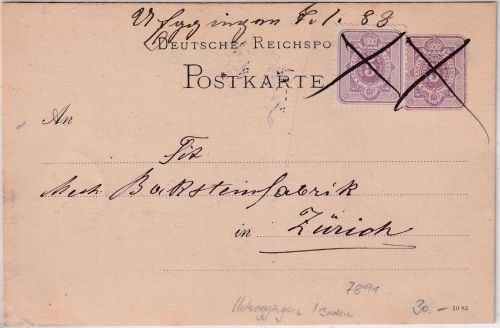 Uffingen 6.1.83
DEUTSCHE REICHSPO
POSTKARTE
An
Tit
Mech. Backsteinfabrik
in Zürich
789a
Untereggingen / Baden
30.-
10 82